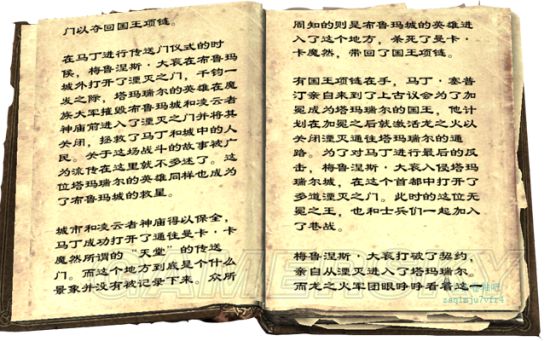 门以夺回国王项链。
在马丁进行传送门仪式的时
候，梅鲁涅斯·大衮在布鲁玛
城外打开了湮灭之门，千钧一
发之际，塔玛瑞尔的英雄在魔
族大军摧毁布鲁玛城和凌云者
神庙前进入了湮灭之门并将其
关闭，拯救了马丁和城中的人
民。关于这场战斗的故事被广
为流传在这里就不多述了。这
位塔玛瑞尔的英雄同样也成为
了布鲁玛城的救星。
城市和凌云者神庙得以保全，
马丁成功打开了通往曼卡·卡
魔然所谓的“天堂”的传送
门。而这个地方到底是个什么
景象并没有被记录下来。众所
周知的则是布鲁玛城的英雄进
入了这个地方，杀死了曼卡·
卡魔然，带回了国王项链。
有国王项链在手，马丁·塞普
汀亲自来到了上古议会为了加
冕成为塔玛瑞尔的国王，他计
划在加冕之后就激活龙之火以
关闭湮灭通往塔玛瑞尔的通
路。为了对马丁进行最后的反
击，梅鲁涅斯·大衮入侵塔玛
瑞尔城，在这个首都中打开了
多道湮灭之门。此时的这位无
冕之王，也和士兵们一起加入
了巷战。
梅鲁涅斯·大衮打破了契约，
亲自从湮灭进入了塔玛瑞尔。
而龙之火军团眼睁睁看着这
GAMERSKY
zaq1mju7vfr4